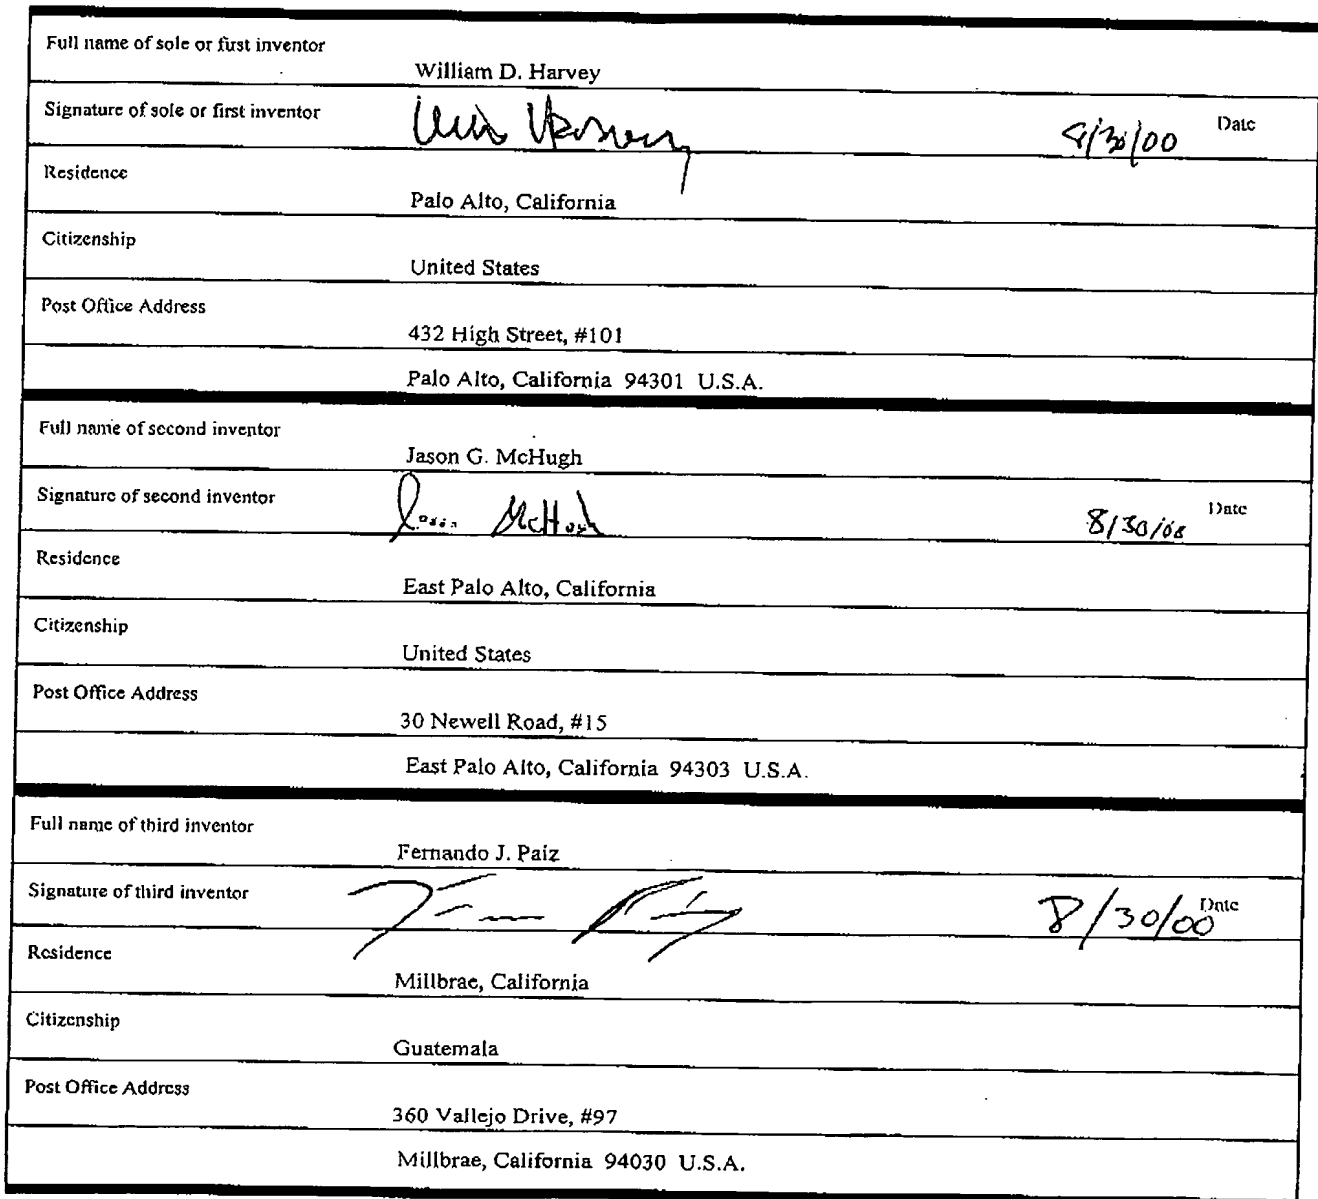 Full name of sole or first inventor
William D. Harvey
Signature of sole or first inventor
Date
Residence
Palo Alto, California
Citizenship
United States
Post Office Address
432 High Street, #101
Palo Alto, California 94301 U.S.A.
Full name of second inventor
Jason G. McHugh
Signature of second inventor
Jason McHugh 8/30/00 Date
Residence
East Palo Alto, California
Citizenship
United States
Post Office Address
30 Newell Road, #15
East Palo Alto, California 94303 U.S.A.
Full name of third inventor
Fernando J. Paiz
Signature of third inventor
8/30/00 Date
Residence
Millbrae, California
Citizenship
Guatemala
Post Office Address
360 Vallejo Drive, #97
Millbrae, California 94030 U.S.A.